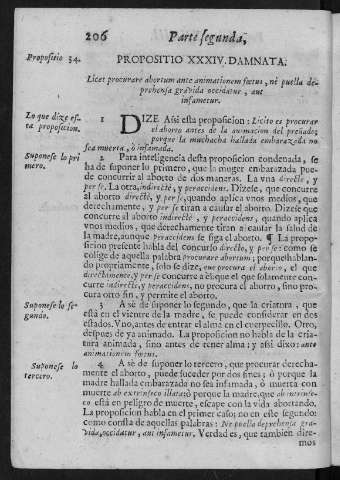 206 Parte segunda,
Propositio 34.
PROPOSITIO XXXIV. DAMNATA.
Licet procurare abortum ante animationem fœtus, ne puella de-
prehensa gravida occidatur, aut
infametur.
Lo que dize es-
ta proposicion.
1 DIZE Assi esta proposicion: Licito es procurar
el aborto antes de la animacion del preñado;
porque la muchacha hallada embarazada no
sea muerta, ò infamada.
Suponese lo pri
mero.
2 Para inteligencia desta proposicion condenada, se
ha de suponer lo primero, que la muger embarazada puede
concurrir al aborto de dos maneras. La vna directè, y
per se. La otra, indirectè, y peraccidens. Dizese, que concurre
al aborto directè, y per se, quando aplica vnos medios, que
derechamente, y per se tiran a causar el aborto. Dizese que
concurre al aborto indirectè, y peraccidens, quando aplica
vnos medios, que derechamente tiran al causar la salud de
la madre, aunque peraccidens se siga el aborto. ¶ La propo-
sicion presente habla del concurso directo, y per se: como se
colige de aquella palabra procurare abortum; porque hablan-
do propriamente, solo se dize, que procura el aborto, el que
directamente, y per se concurre a él: que el que solamente con-
curre indirectè, y peraccidens, no procura el aborto, sino procu-
ra otro fin, y permite el aborto.
Supones lo se-
gundo.
3 A se de suponer lo segundo, que la criatura, que
está en el vientre de la madre, se puede considerar en dos
estados. Vno, antes de entrar el alma en el cuerpecillo. Otro,
despues de ya animada. La proposicion no habla de la cria-
tura animada, sino antes de tener alma; y assi dixo: ante
animationem fœtus.
Suponese lo
tercero.
4 A se de suponer lo tercero, que procurar derecha-
mente el aborto, puede suceder por dos fines; ò porque la
madre hallada embarazada no sea infamada, ò muerta con
muerte ab extrinseco illata; ò porque la madre, que ab intrinse-
co está en peligro de muerte, escape con la vida abortando.
La proposicion habla en el primer caso; no en este segundo:
como consta de aquellas palabras: Ne puella deprehensa gra-
vida, occidatur, aut infametur. Verdad es, que tambien dire-
mos